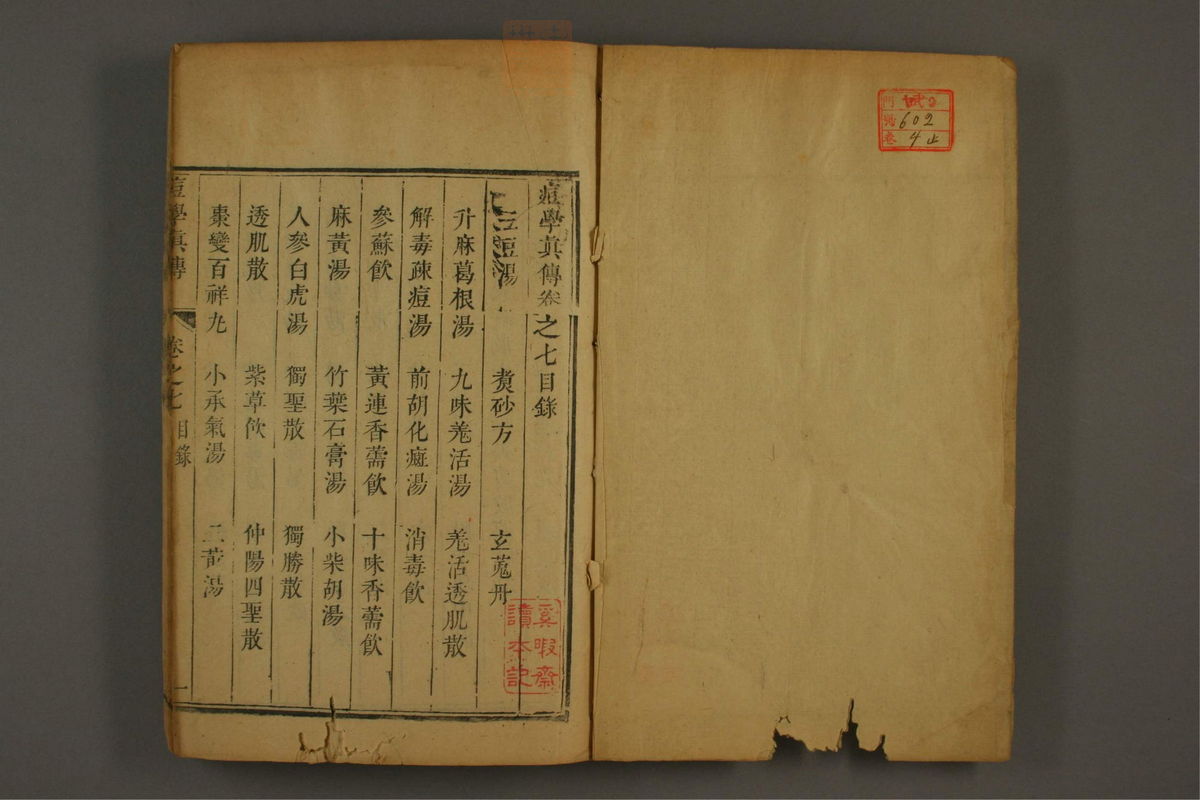 痘學真傳卷之七目錄
三痘湯 煑砂方 玄菟丹
升麻葛根湯 九味羗活湯 羗活透肌散
解毒疎痘湯 前胡化癍湯 消毒飲
參蘇飲 黃連香薷飲 十味香薷飲
麻黃湯 竹葉石膏湯 小柴胡湯
人參白虎湯 獨聖散 獨勝散
透肌散 紫草飲 仲陽四聖散
棗變百祥丸 小承氣湯 二黃湯
痘學真傳 卷之七 目錄 一
奚暇齋
讀本記
門
號 602
卷 4止